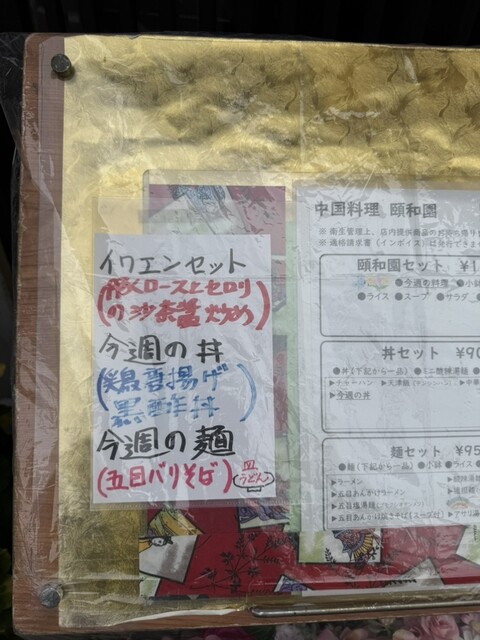 イワエンセット
(豚ロースとセロリ
の沙茶醤炒め)
今週の丼
(鶏唐揚げ
黒酢丼)
今週の麺
(五目バリそば)
皿うどん
中国料理 頤和園
※ 衛生管理上、店内提供商品のお持ち帰り
※ 適格請求書(インボイス)は発行できま
頤和園セット ¥1
●今週の料理 ●小鉢
●ライス ●スープ ●サラダ
丼セット ¥90
●丼(下記から一品) ●ミニ
▶チャーハン ▶天津飯 ▶中華
▶今週の丼
麺セット ¥95
●麺(下記から一品) ●小鉢 ●ライス
▶ラーメン
▶五目あんかけラーメン
▶五目塩湯麺
▶五目あんかけ焼きそば(スープ付)